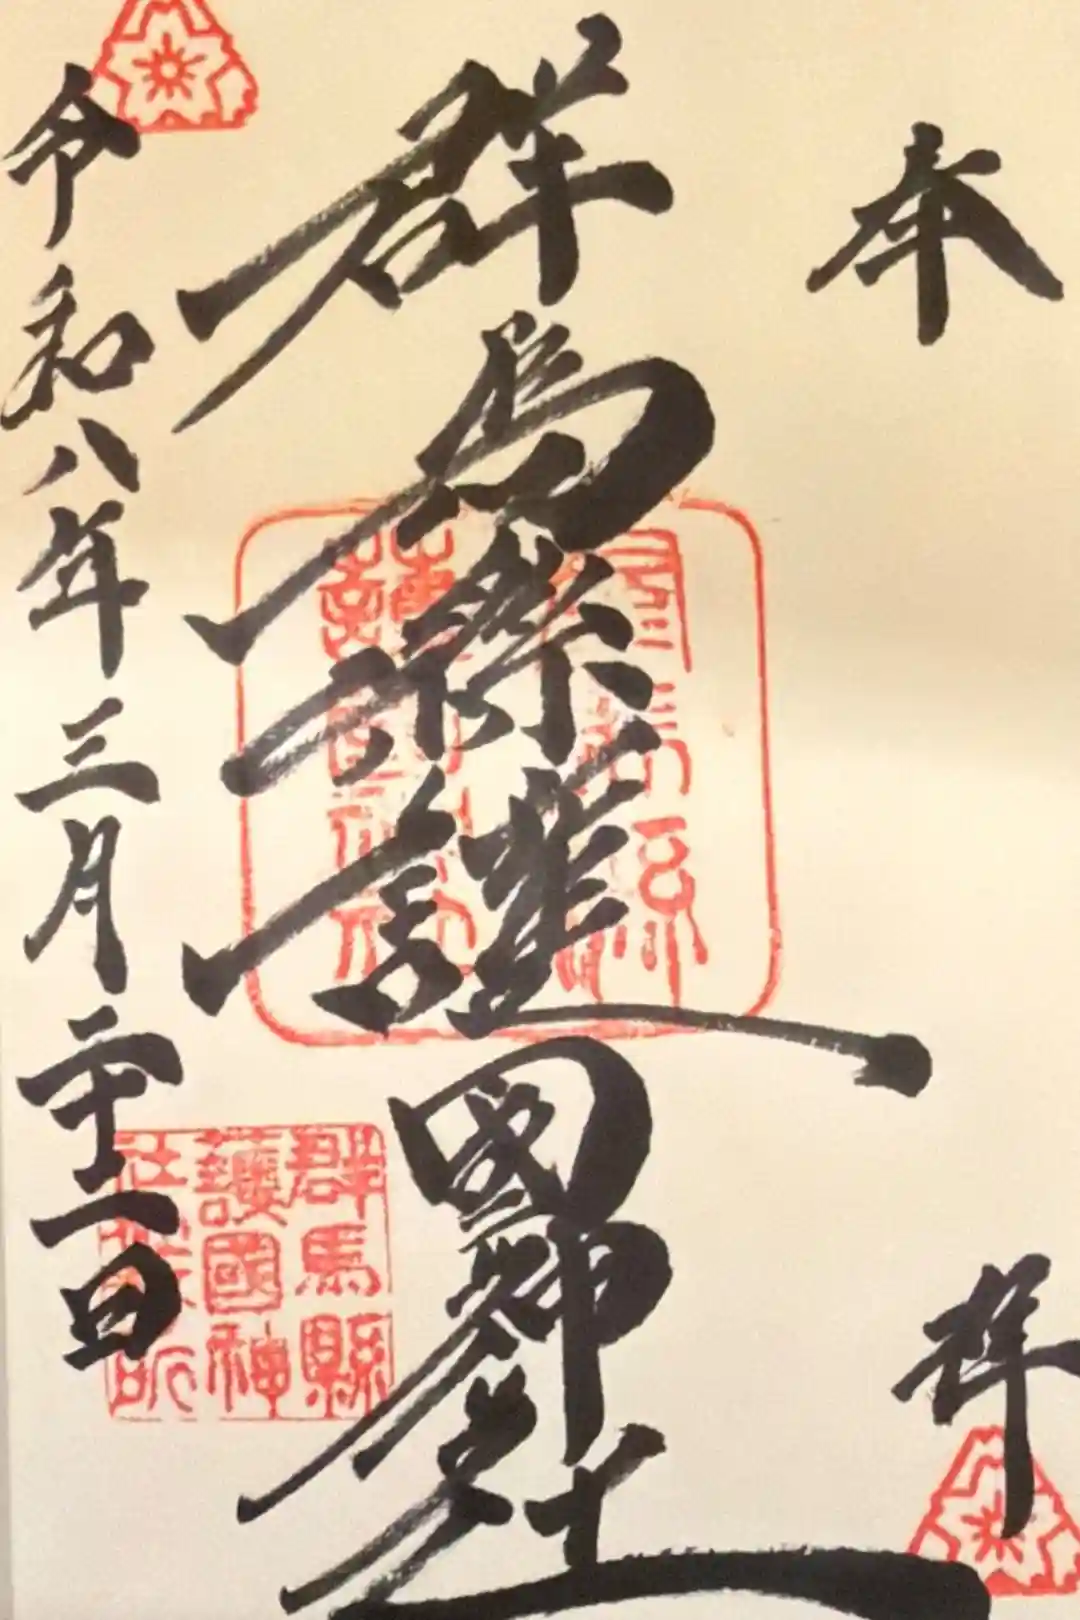 奉
拝
群馬縣護國神社
令和八年三月二十一日
群馬縣
護國神
社務所